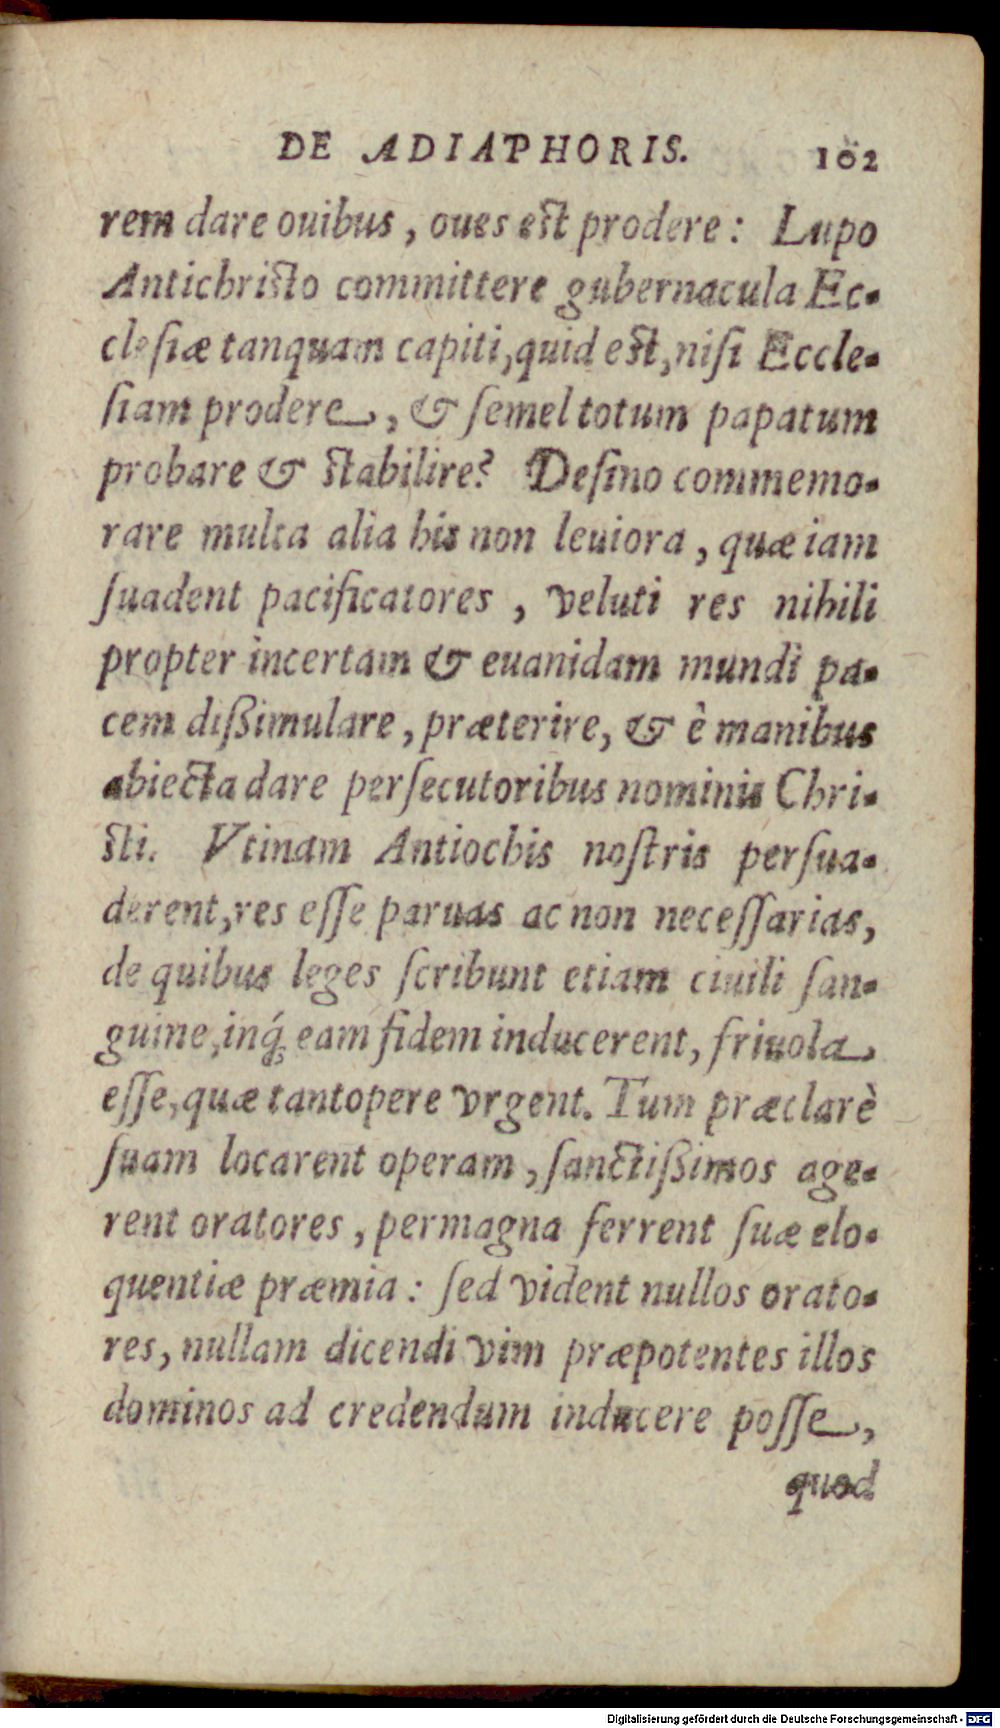 DE ADIAPHORIS. 102
rem dare ouibus, oues est prodere: Lupo
Antichristo committere gubernacula Ec-
clesiæ tanquam capiti, quid est, nisi Eccle-
siam prodere, & semel totum papatum
probare & stabilire? Desino commemo-
rare multa alia his non leuiora, quæ iam
suadent pacificatores, veluti res nihili
propter incertam & euanidam mundi pa-
cem dißimulare, præterire, & è manibus
abiecta dare persecutoribus nominis Chri-
sti. Vtinam Antiochis nostris persua-
derent, res esse paruas ac non necessarias,
de quibus leges scribunt etiam ciuili san-
guine, inq́; eam fidem inducerent, friuola
esse, quæ tantopere vrgent. Tum præclarè
suam locarent operam, sanctißimos age-
rent oratores, permagna ferrent suæ elo-
quentiæ præmia: sed vident nullos orato-
res, nullam dicendi vim præpotentes illos
dominos ad credendum inducere posse,
quod
Digitalisierung gefördert durch die Deutsche Forschungsgemeinschaft - DFG